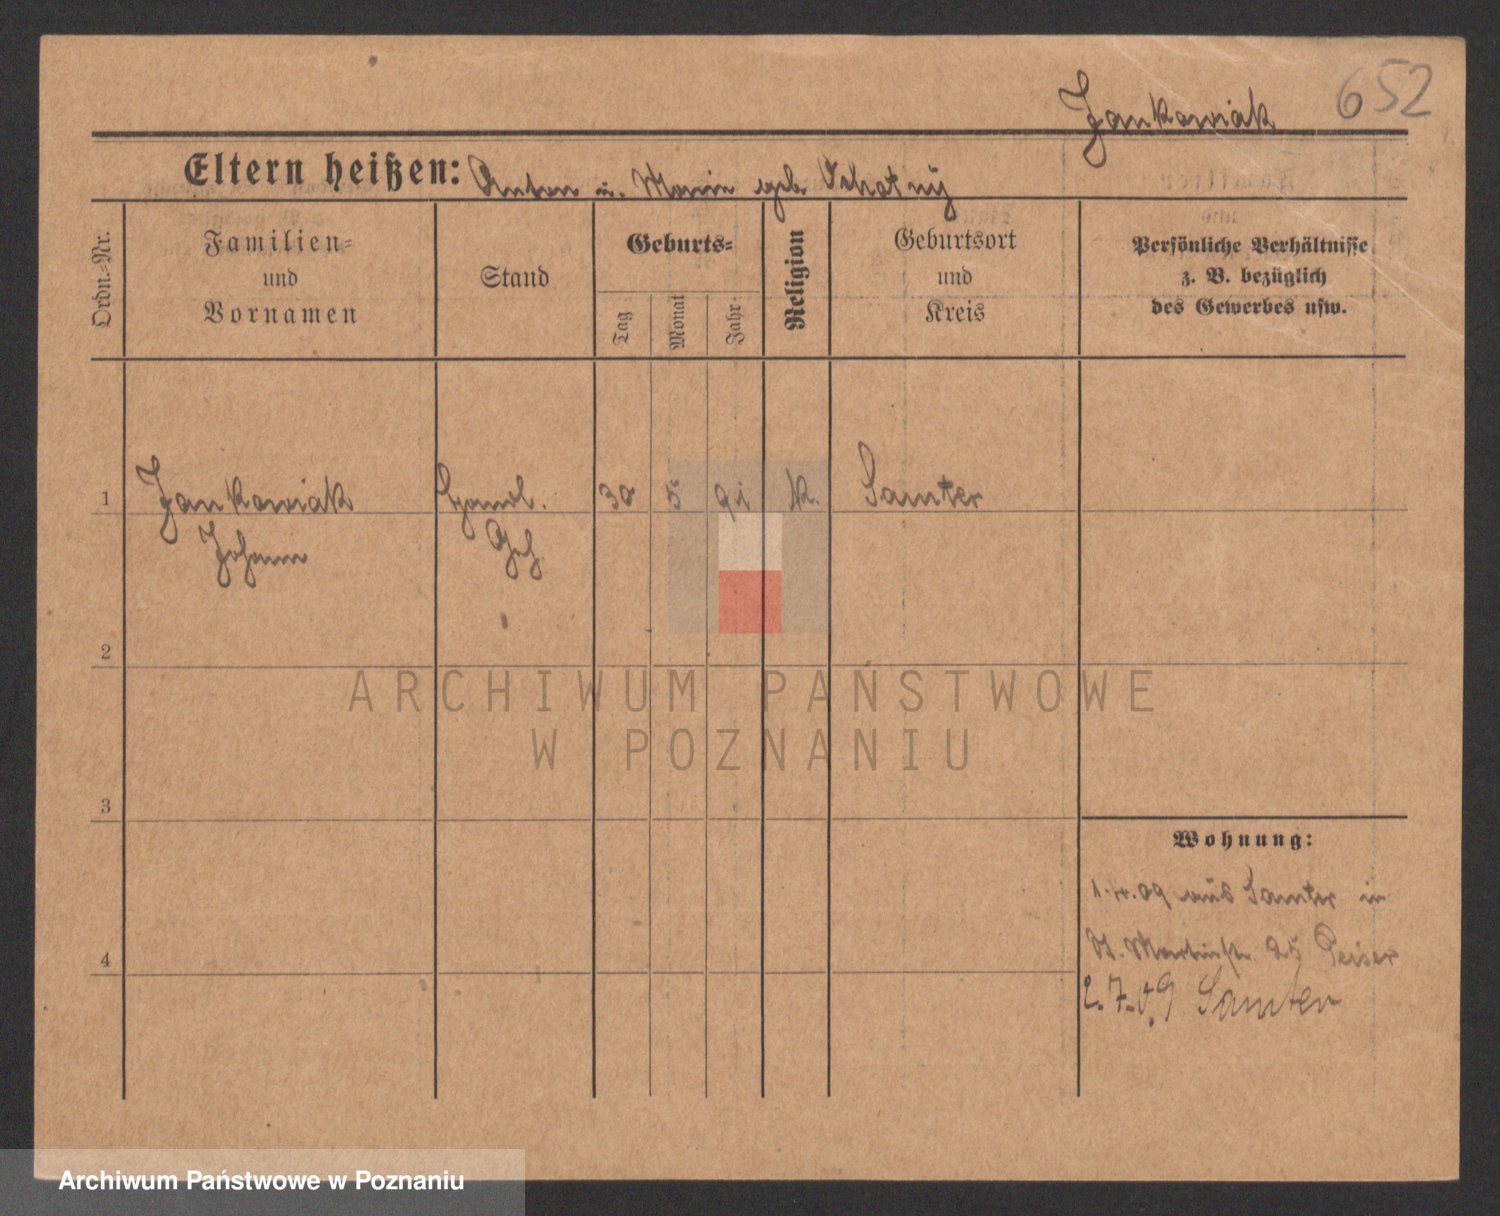 652
Jankowiak
Eltern heißen: Anton u. Marie geb.
Ordn.=Nr.
Familien=
und
Vornamen
Stand
Geburts=
Tag
Monat
Jahr
Religion
Geburtsort
und
Kreis
Persönliche Verhältnisse
z. B. bezüglich
des Gewerbes usw.
1 Jankowiak Handl. 30 5 91 k. Samter
Johann Geh.
2
3
4
Wohnung:
1.4.09 aus Samter in
St. Martinstr. 25 Peiser
2.7.09 Samter
ARCHIWUM PAŃSTWOWE
W POZNANIU
Archiwum Państwowe w Poznaniu